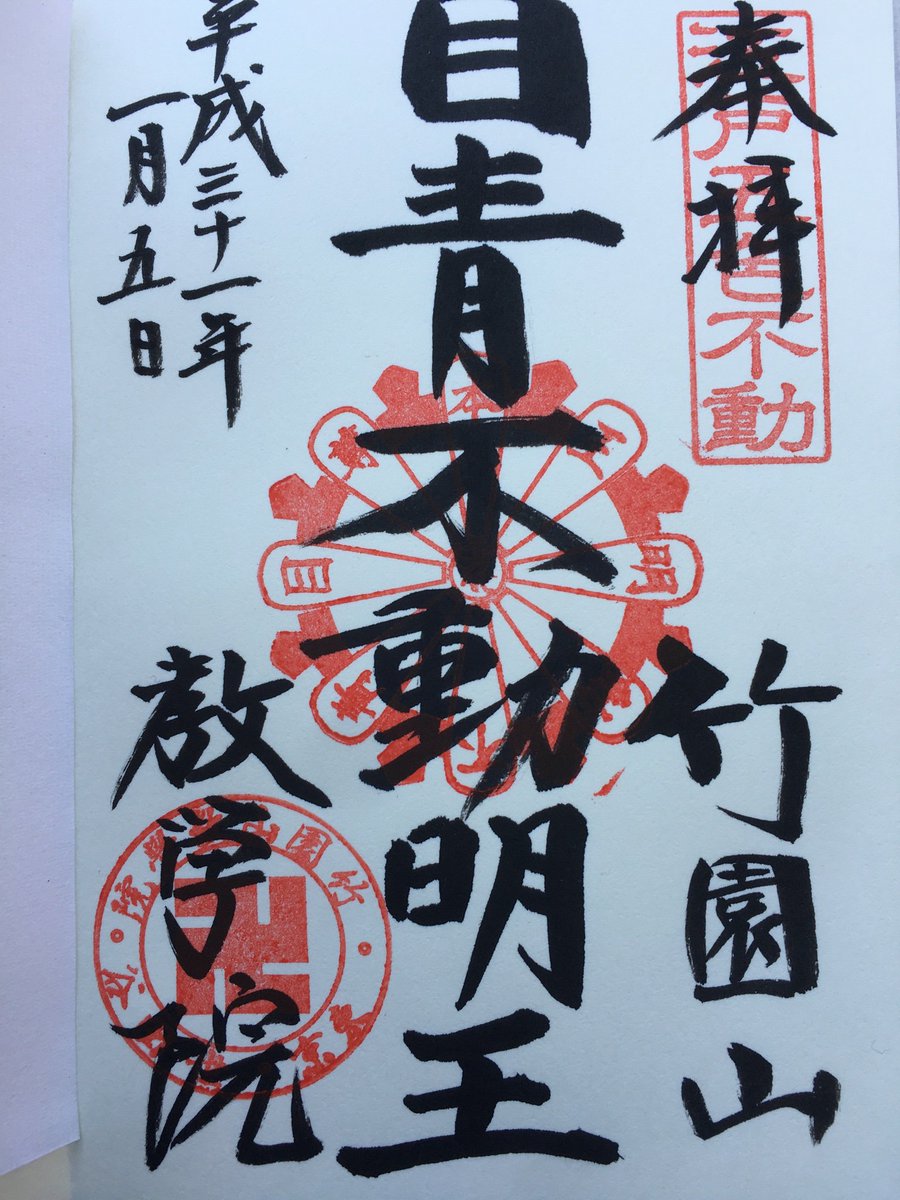 奉拝
江戸五色不動
竹園山
目青不動明王
平成三十一年
一月五日
教学院